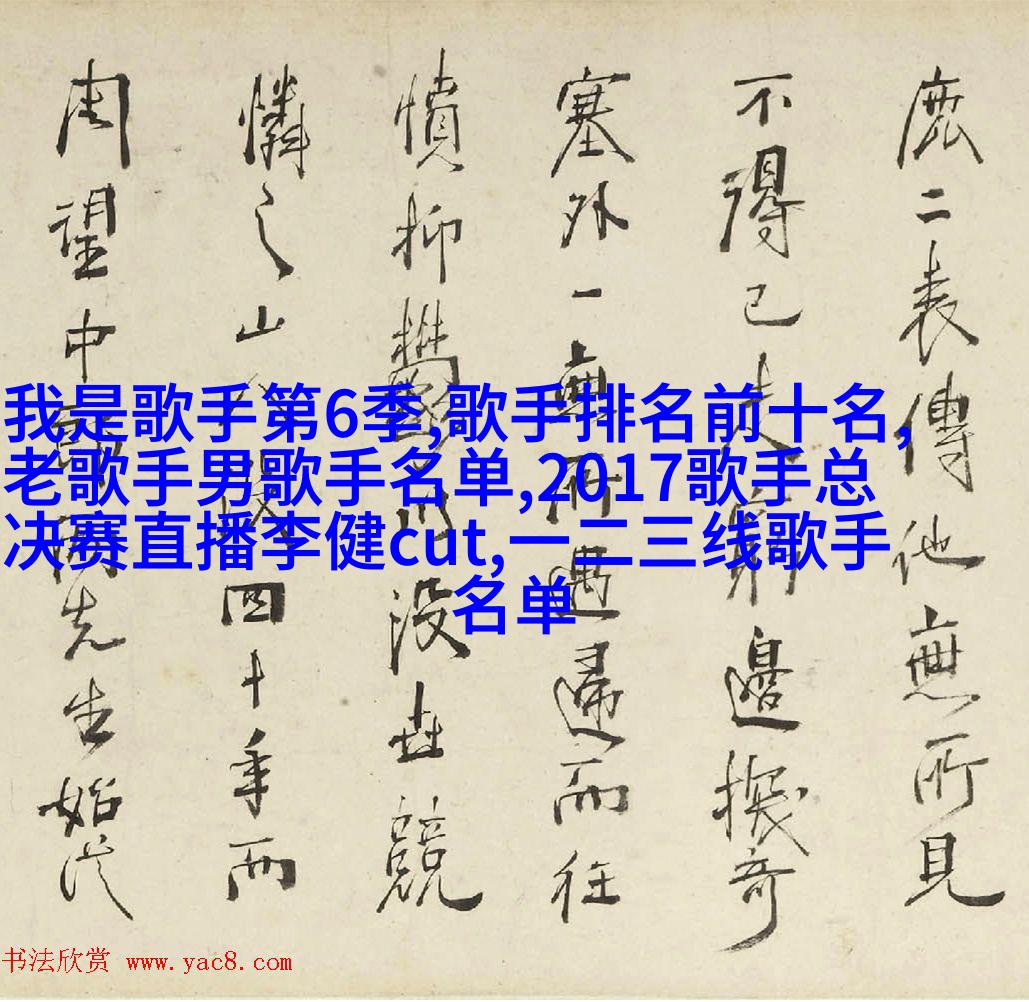 我是歌手第6季,歌手排名前十名,
老歌手男歌手名单,2017歌手总
决赛直播李健cut,一二三线歌手
名单
鹿二表傳他無所見
不得已走窮邊探奇
塞外一無所遇歸而往
憤抑鬱没世競
憐之山四十年而
周望中先生始從
书法欣赏 www.yac8.com